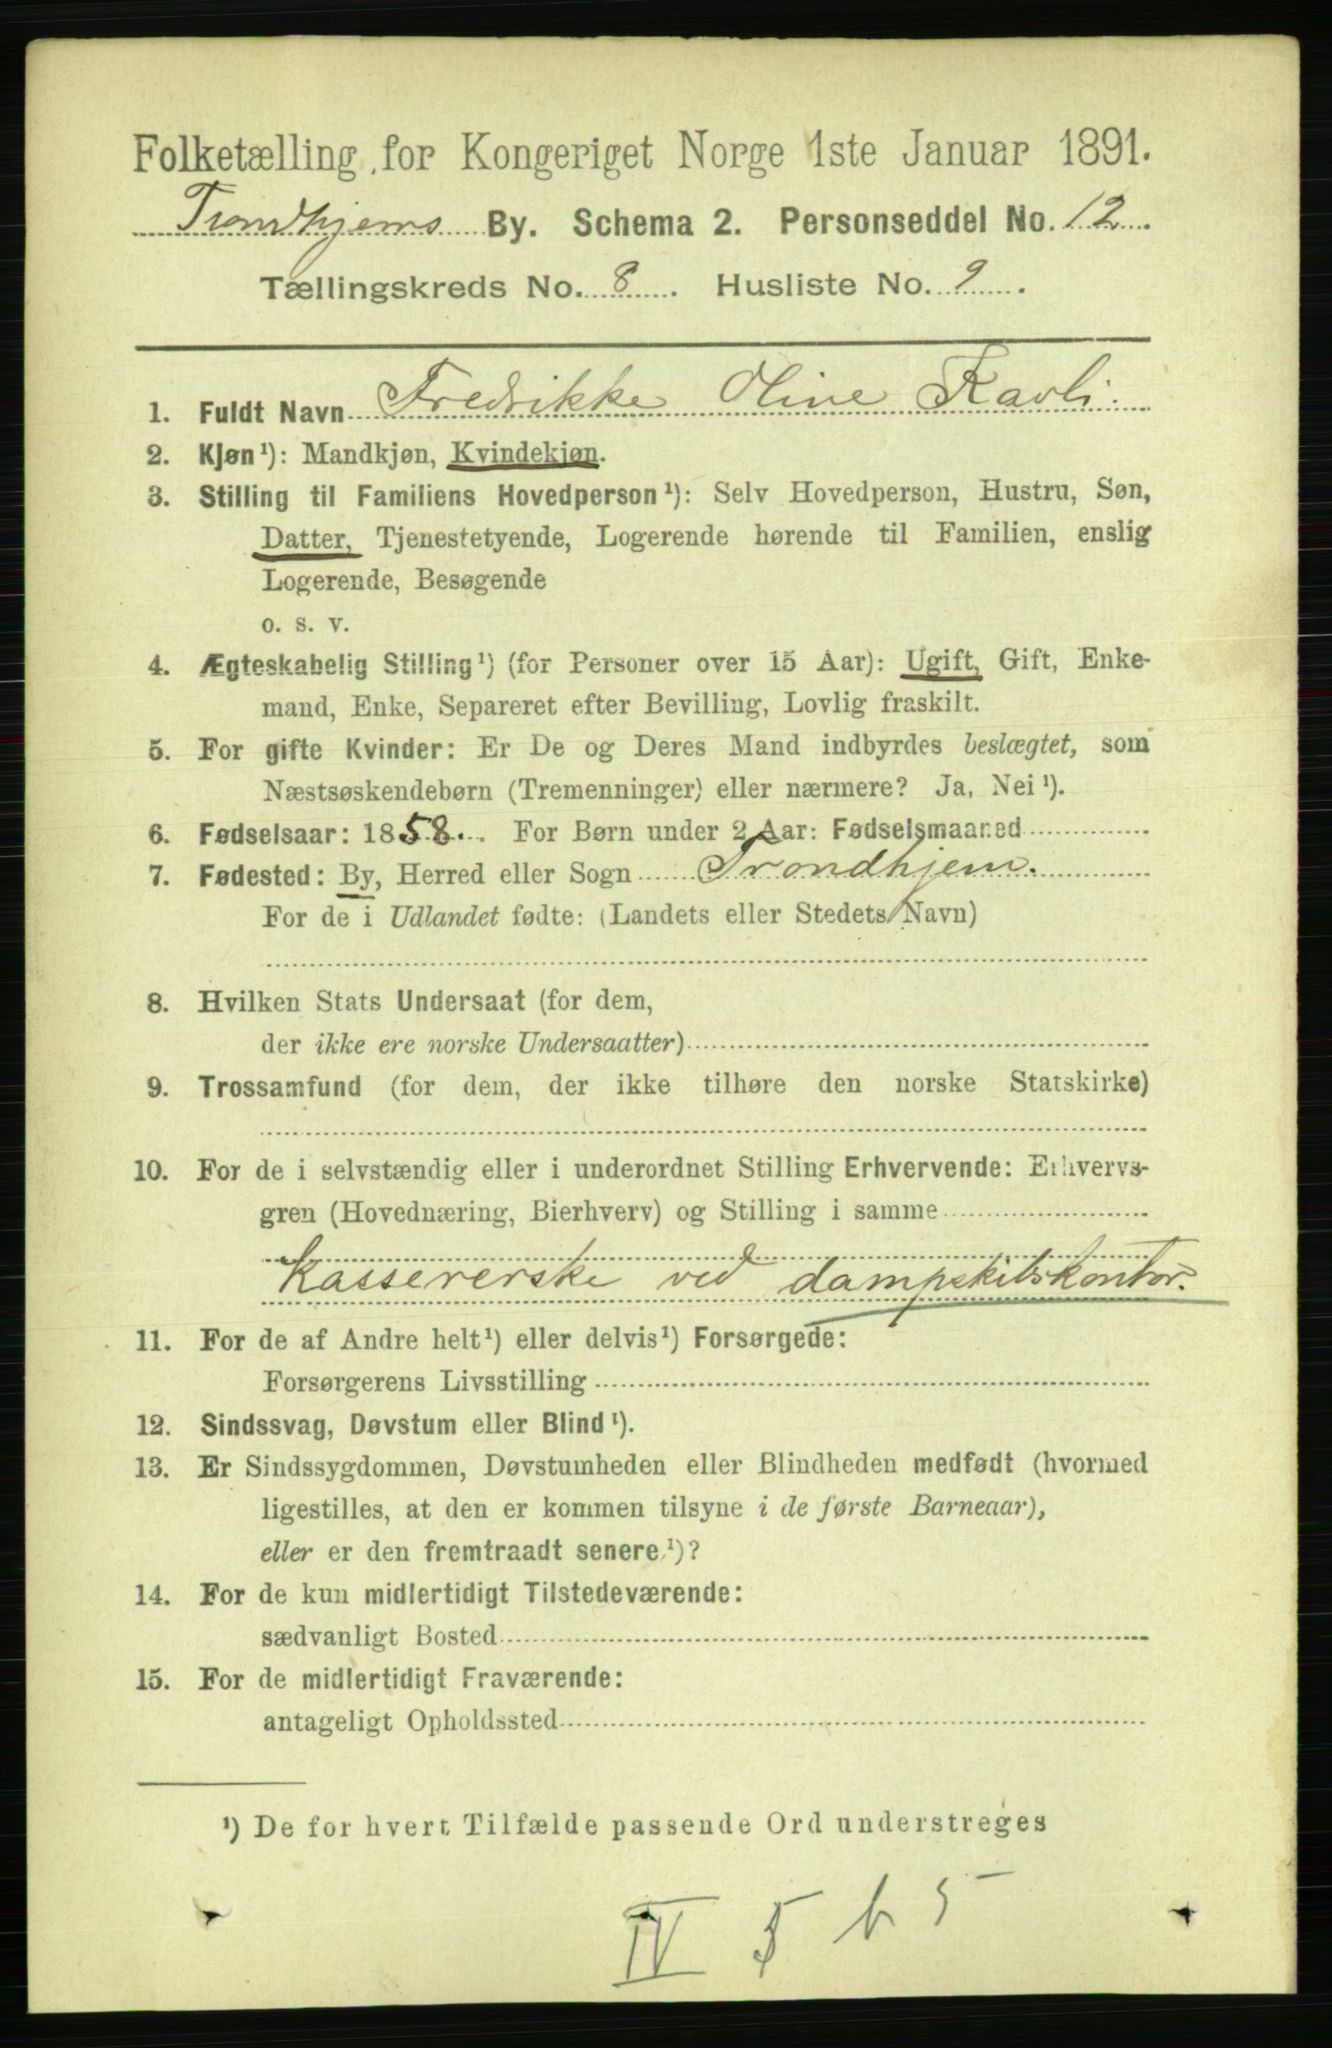 Folketælling for Kongeriget Norge 1ste Januar 1891.
Trondhjems By. Schema 2. Personseddel No. 12.
Tællingskreds No. 8. Husliste No. 9.
1. Fuldt Navn Fredrikke Oline Kavli.
2. Kjøn¹): Mandkjøn, Kvindekjøn.
3. Stilling til Familiens Hovedperson¹): Selv Hovedperson, Hustru, Søn,
Datter, Tjenestetyende, Logerende hørende til Familien, enslig
Logerende, Besøgende
o. s. v.
4. Ægteskabelig Stilling¹) (for Personer over 15 Aar): Ugift, Gift, Enke-
mand, Enke, Separeret efter Bevilling, Lovlig fraskilt.
5. For gifte Kvinder: Er De og Deres Mand indbyrdes beslægtet, som
Næstsøskendebørn (Tremenninger) eller nærmere? Ja, Nei¹).
6. Fødselsaar: 1858. For Børn under 2 Aar: Fødselsmaaned
7. Fødested: By, Herred eller Sogn Trondhjem.
For de i Udlandet fødte: (Landets eller Stedets Navn)
8. Hvilken Stats Undersaat (for dem,
der ikke ere norske Undersaatter)
9. Trossamfund (for dem, der ikke tilhøre den norske Statskirke)
10. For de i selvstændig eller i underordnet Stilling Erhvervende: Erhvervs-
gren (Hovednæring, Bierhverv) og Stilling i samme
Kassererske ved dampskibskontor.
11. For de af Andre helt¹) eller delvis¹) Forsørgede:
Forsørgerens Livsstilling
12. Sindssvag, Døvstum eller Blind¹).
13. Er Sindssygdommen, Døvstumheden eller Blindheden medfødt (hvormed
ligestilles, at den er kommen tilsyne i de første Barneaar),
eller er den fremtraadt senere¹)?
14. For de kun midlertidigt Tilstedeværende:
sædvanligt Bosted
15. For de midlertidigt Fraværende:
antageligt Opholdssted
¹) De for hvert Tilfælde passende Ord understreges
IV 5 b 5